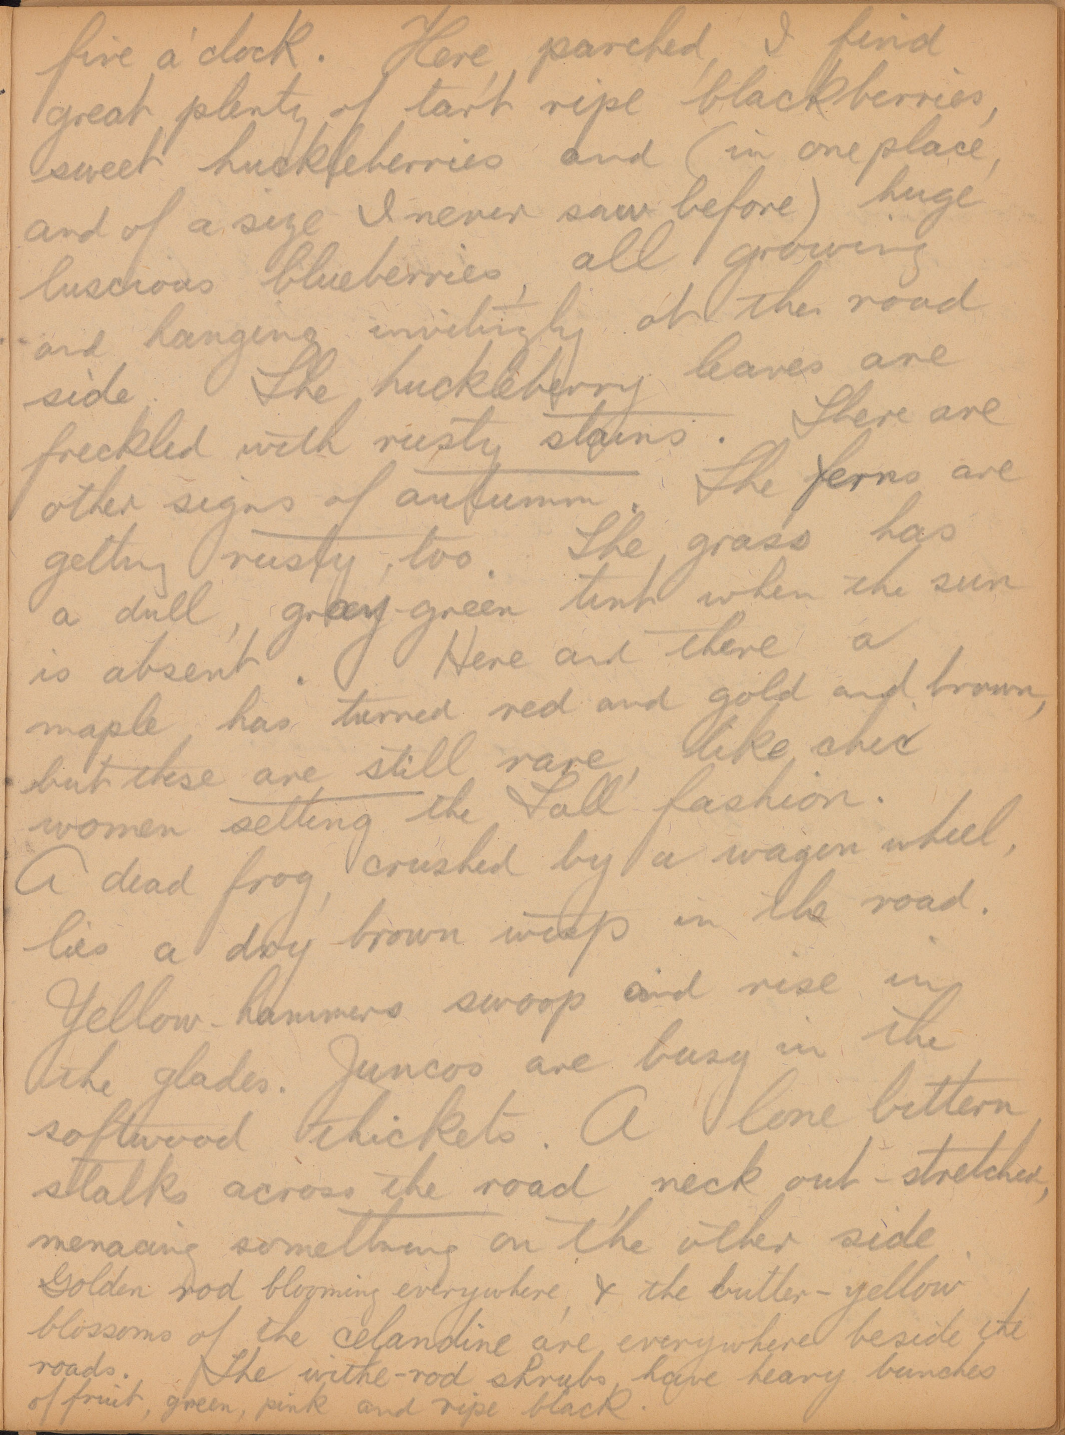 five o'clock. Here, parched, I find
great plenty of tart ripe blackberries,
sweet huckleberries and (in one place,
and of a size I never saw before) huge
luscious blueberries, all growing
and hanging invitingly at the road
side. The huckleberry leaves are
freckled with rusty stains. There are
other signs of autumn. The ferns are
getting rusty, too. The grass has
a dull, gray-green tint when the sun
is absent. Here and there a
maple has turned red and gold and brown,
but these are still rare, like chic
women setting the Fall fashion.
A dead frog, crushed by a wagon wheel,
lies a dry brown wisp in the road.
Yellow-hammers swoop and rise in
the glades. Juncos are busy in the
softwood thickets. A lone bittern
stalks across the road neck out-stretched,
menacing something on the other side.
Golden rod blooming everywhere, & the butter-yellow
blossoms of the celandine are everywhere beside the
roads. The withe-rod shrubs have heavy bunches
of fruit, green, pink and ripe black.